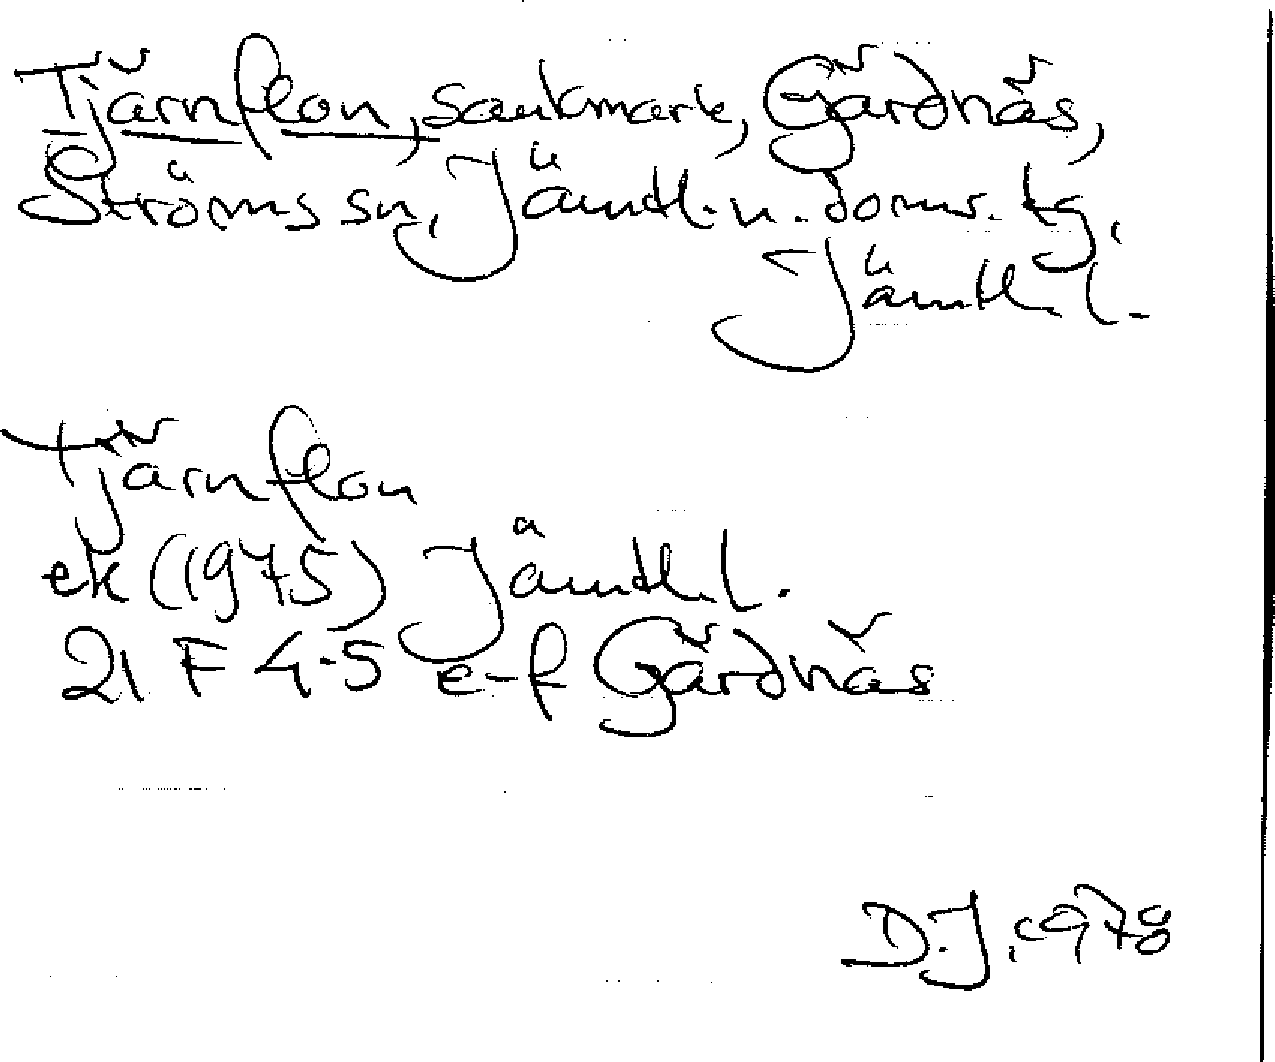 Tjärnflon, sankmark, Gärdnäs,
Ströms sn, Jämtl. n. doms. tg,
Jämtl. l.
Tjärnflon
ek (1975) Jämtl. l.
21 F 4-5 e-f Gärdnäs
D.J. 1978